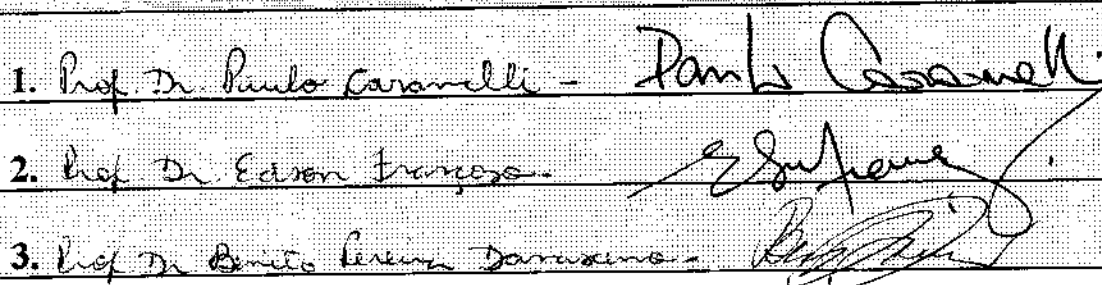 1. Prof. Dr. Paulo Caramelli - Paulo Caramelli
2. Prof. Dr. Edson Françozo -
3. Prof. Dr. Benito Pereira Damasceno -